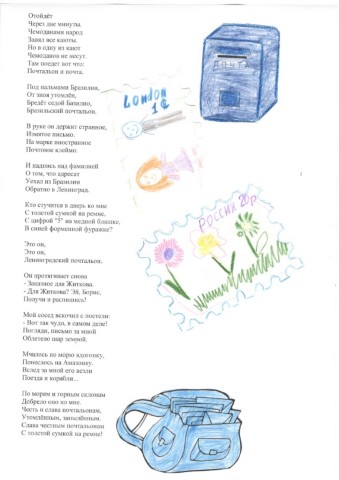 Отойдёт
Через две минуты.
Чемоданами народ
Занял все каюты.
Но в одну из кают
Чемоданов не несут.
Там поедет вот что:
Почтальон и почта.
Под пальмами Бразилии,
От зноя утомлён,
Бредёт седой Базилио,
Бразильский почтальон.
В руке он держит странное,
Измятое письмо.
На марке иностранное
Почтовое клеймо.
И надпись над фамилией
О том, что адресат
Уехал из Бразилии
Обратно в Ленинград.
Кто стучится в дверь ко мне
С толстой сумкой на ремне,
С цифрой "5" на медной бляшке,
В синей форменной фуражке?
Это он,
Это он,
Ленинградский почтальон.
Он протягивает снова
- Заказное для Житкова.
- Для Житкова? Эй, Борис,
Получи и распишись!
Мой сосед вскочил с постели:
- Вот так чудо, в самом деле!
Погляди, письмо за мной
Облетело шар земной.
Мчалось по морю вдогонку,
Понеслось на Амазонку.
Вслед за мной его везли
Поезда и корабли...
По морям и горным склонам
Добрело оно ко мне.
Честь и слава почтальонам,
Утомлённым, запылённым.
Слава честным почтальонам
С толстой сумкой на ремне!
London
РОССИЯ 20р